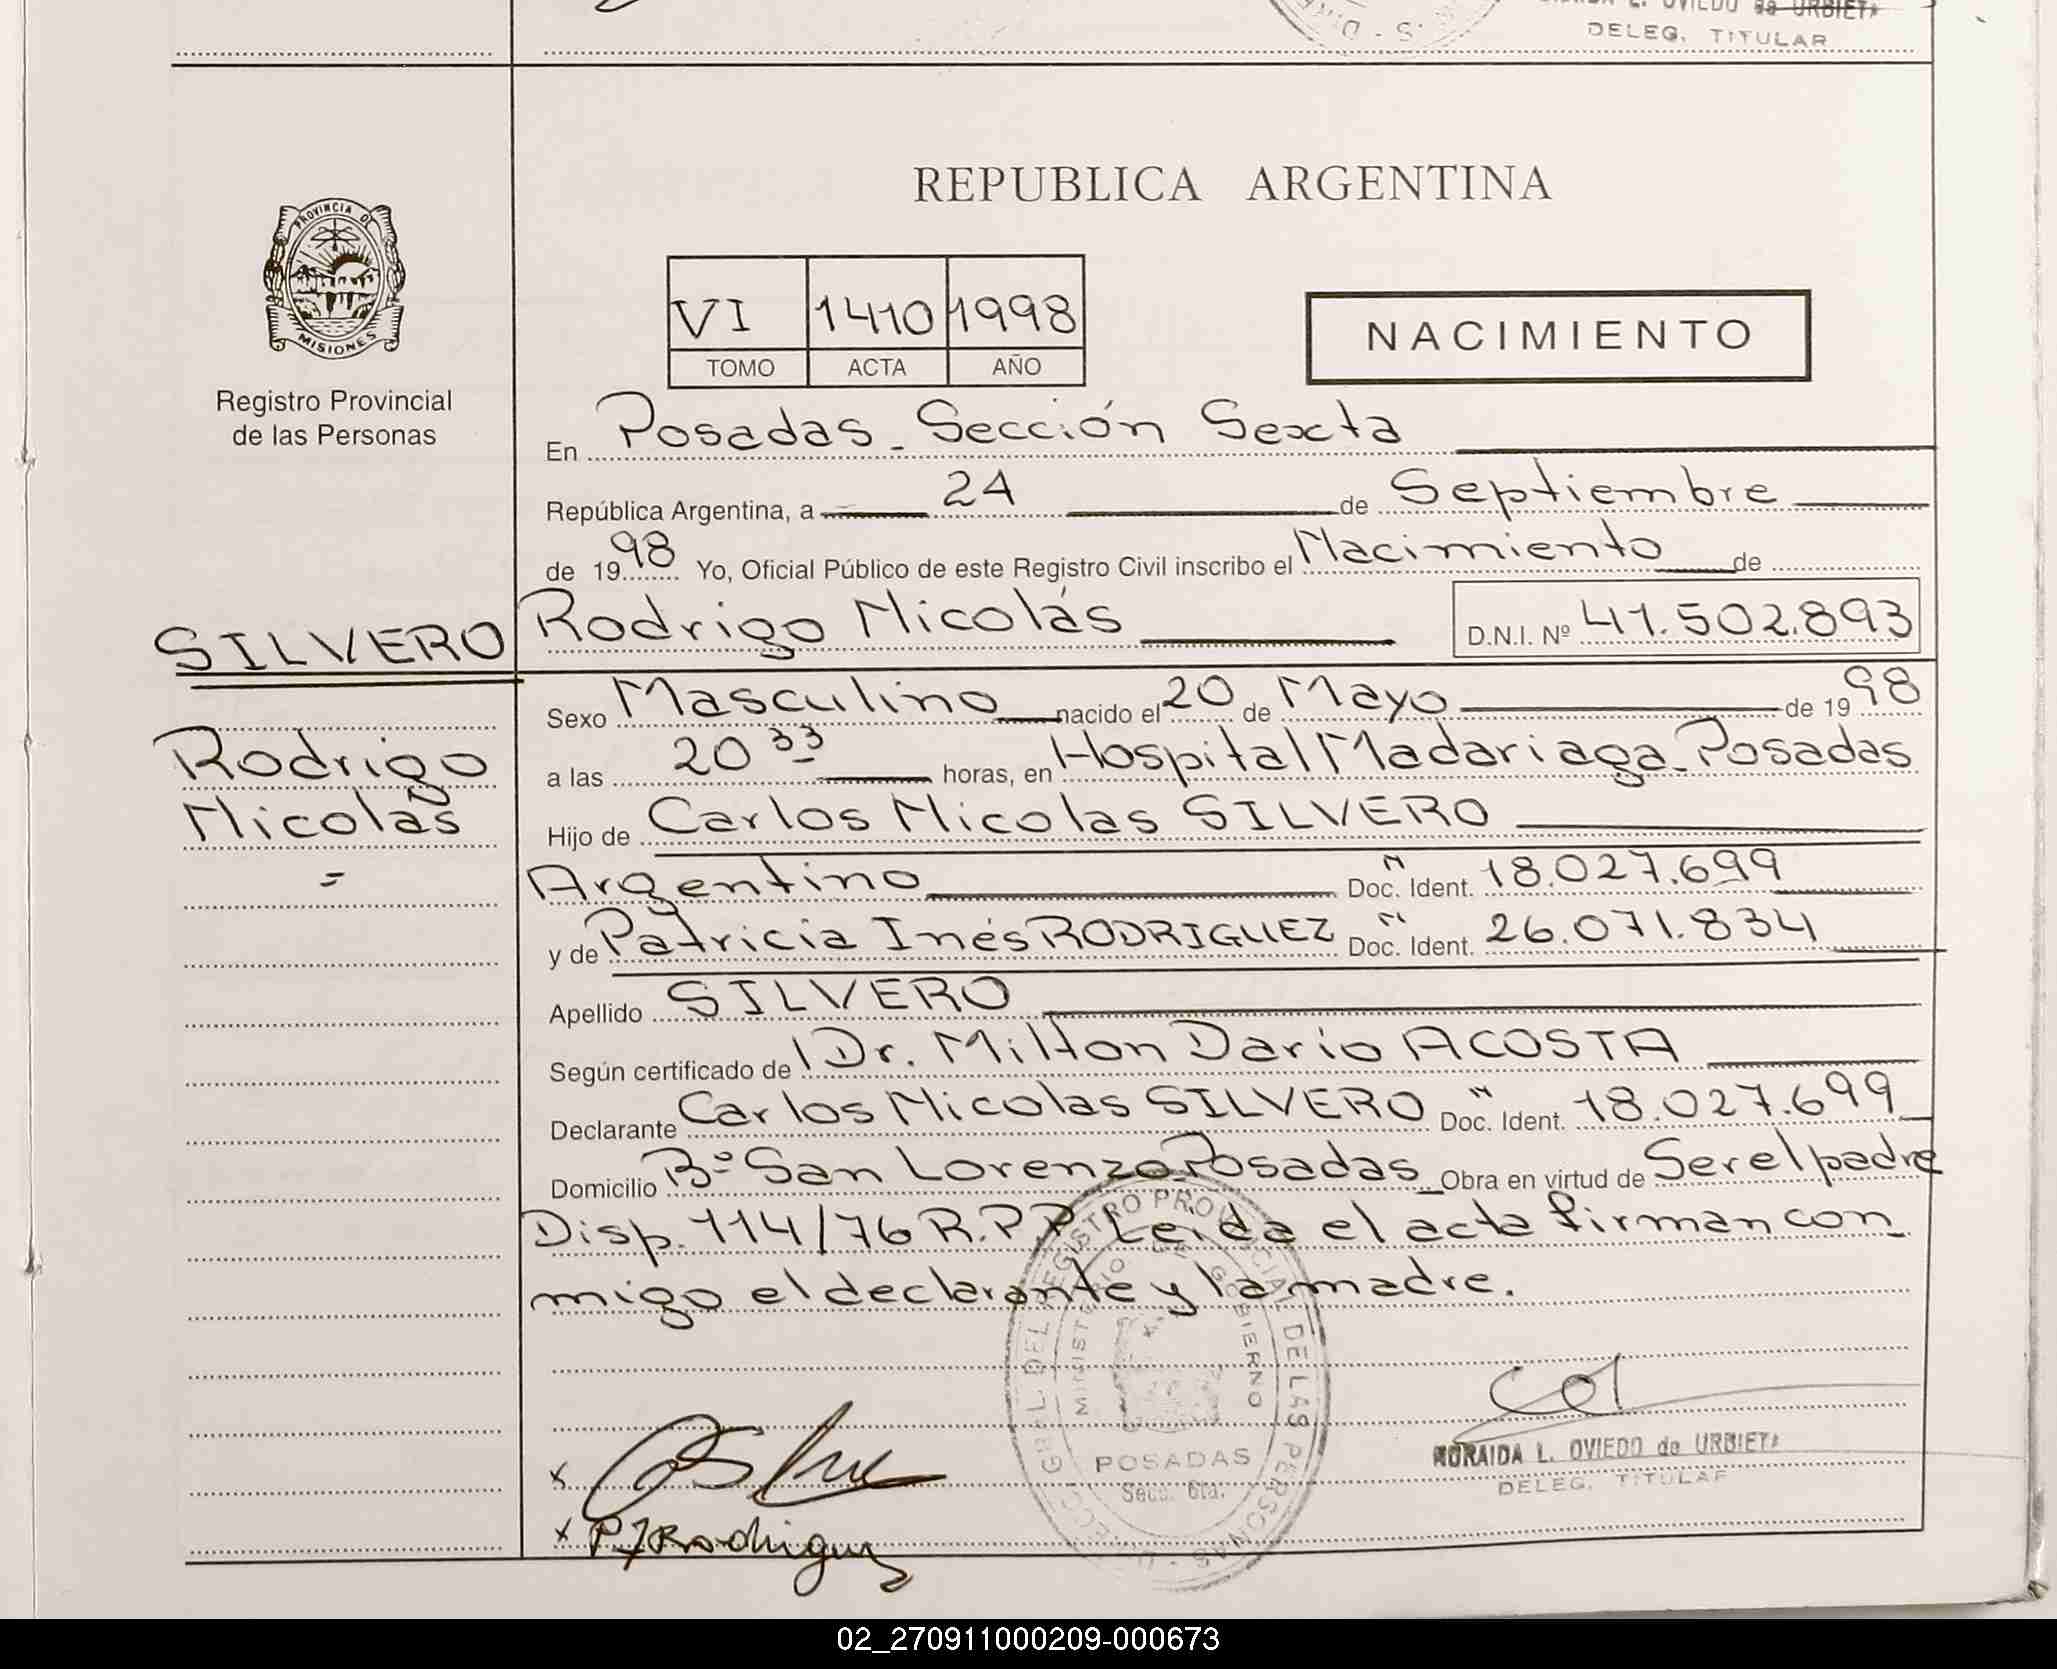 OVIEDO de URBIETA
DELEG. TITULAR
REPUBLICA ARGENTINA
PROVINCIA DE
MISIONES
Registro Provincial
de las Personas
VI 1410 1998
TOMO ACTA AÑO
NACIMIENTO
En Posadas - Sección Sexta
República Argentina, a 24 de Septiembre
de 1998 Yo, Oficial Público de este Registro Civil inscribo el Nacimiento de
SILVERO Rodrigo Nicolás D.N.I. Nº 41.502.893
Rodrigo
Nicolas
=
Sexo Masculino nacido el 20 de Mayo de 1998
a las 20 33 horas, en Hospital Madariaga - Posadas
Hijo de Carlos Nicolas SILVERO
Argentino Doc. Ident. " 18.027.699
y de Patricia Inés RODRIGUEZ Doc. Ident. " 26.071.834
Apellido SILVERO
Según certificado de Dr. Milton Dario ACOSTA
Declarante Carlos Nicolas SILVERO Doc. Ident. " 18.027.699
Domicilio Bº San Lorenzo Posadas Obra en virtud de Ser el padre
Disp. 114/76 R.P.P. Leida el acta firman con
migo el declarante y la madre.
REGISTRO PROVINCIAL DE LAS PERSONAS
MINISTERIO DE GOBIERNO
POSADAS
Secc. 6ta.
NORAIDA L. OVIEDO de URBIETA
DELEG. TITULAR
x
x P I Rodriguez
02_270911000209-000673